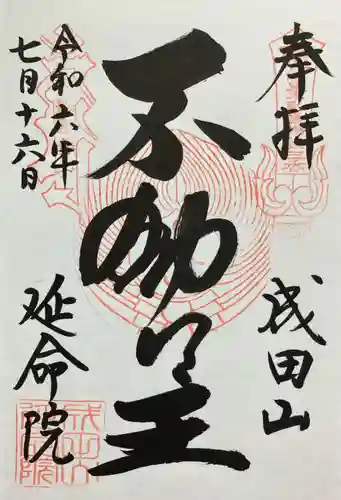 奉拝
成田山
不動明王
令和六年
七月十六日
延命院